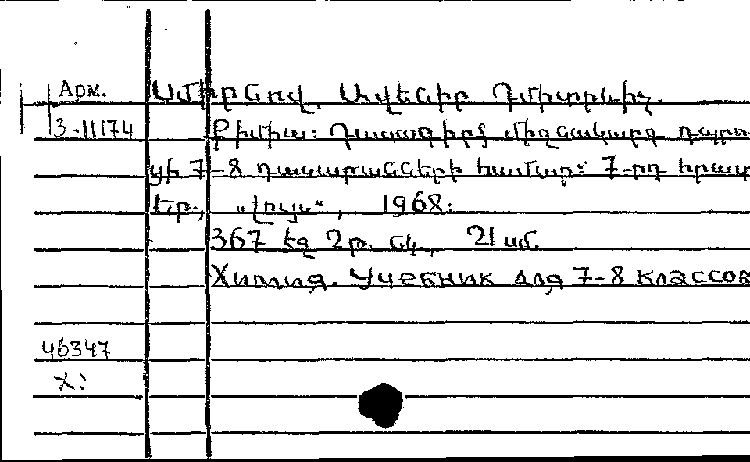 Арм.
Սմիրնով, Ավենիր Դմիտրևիչ.
3-11174
Քիմիա: Դասագիրք միջնակարգ դպրո
ցի 7-8 դասարանների համար: 7-րդ հրատ
Եր., „Լույս“, 1968:
367 էջ 2թ. նկ., 21 սմ.
Химия. Учебник для 7-8 классов
46347
X: